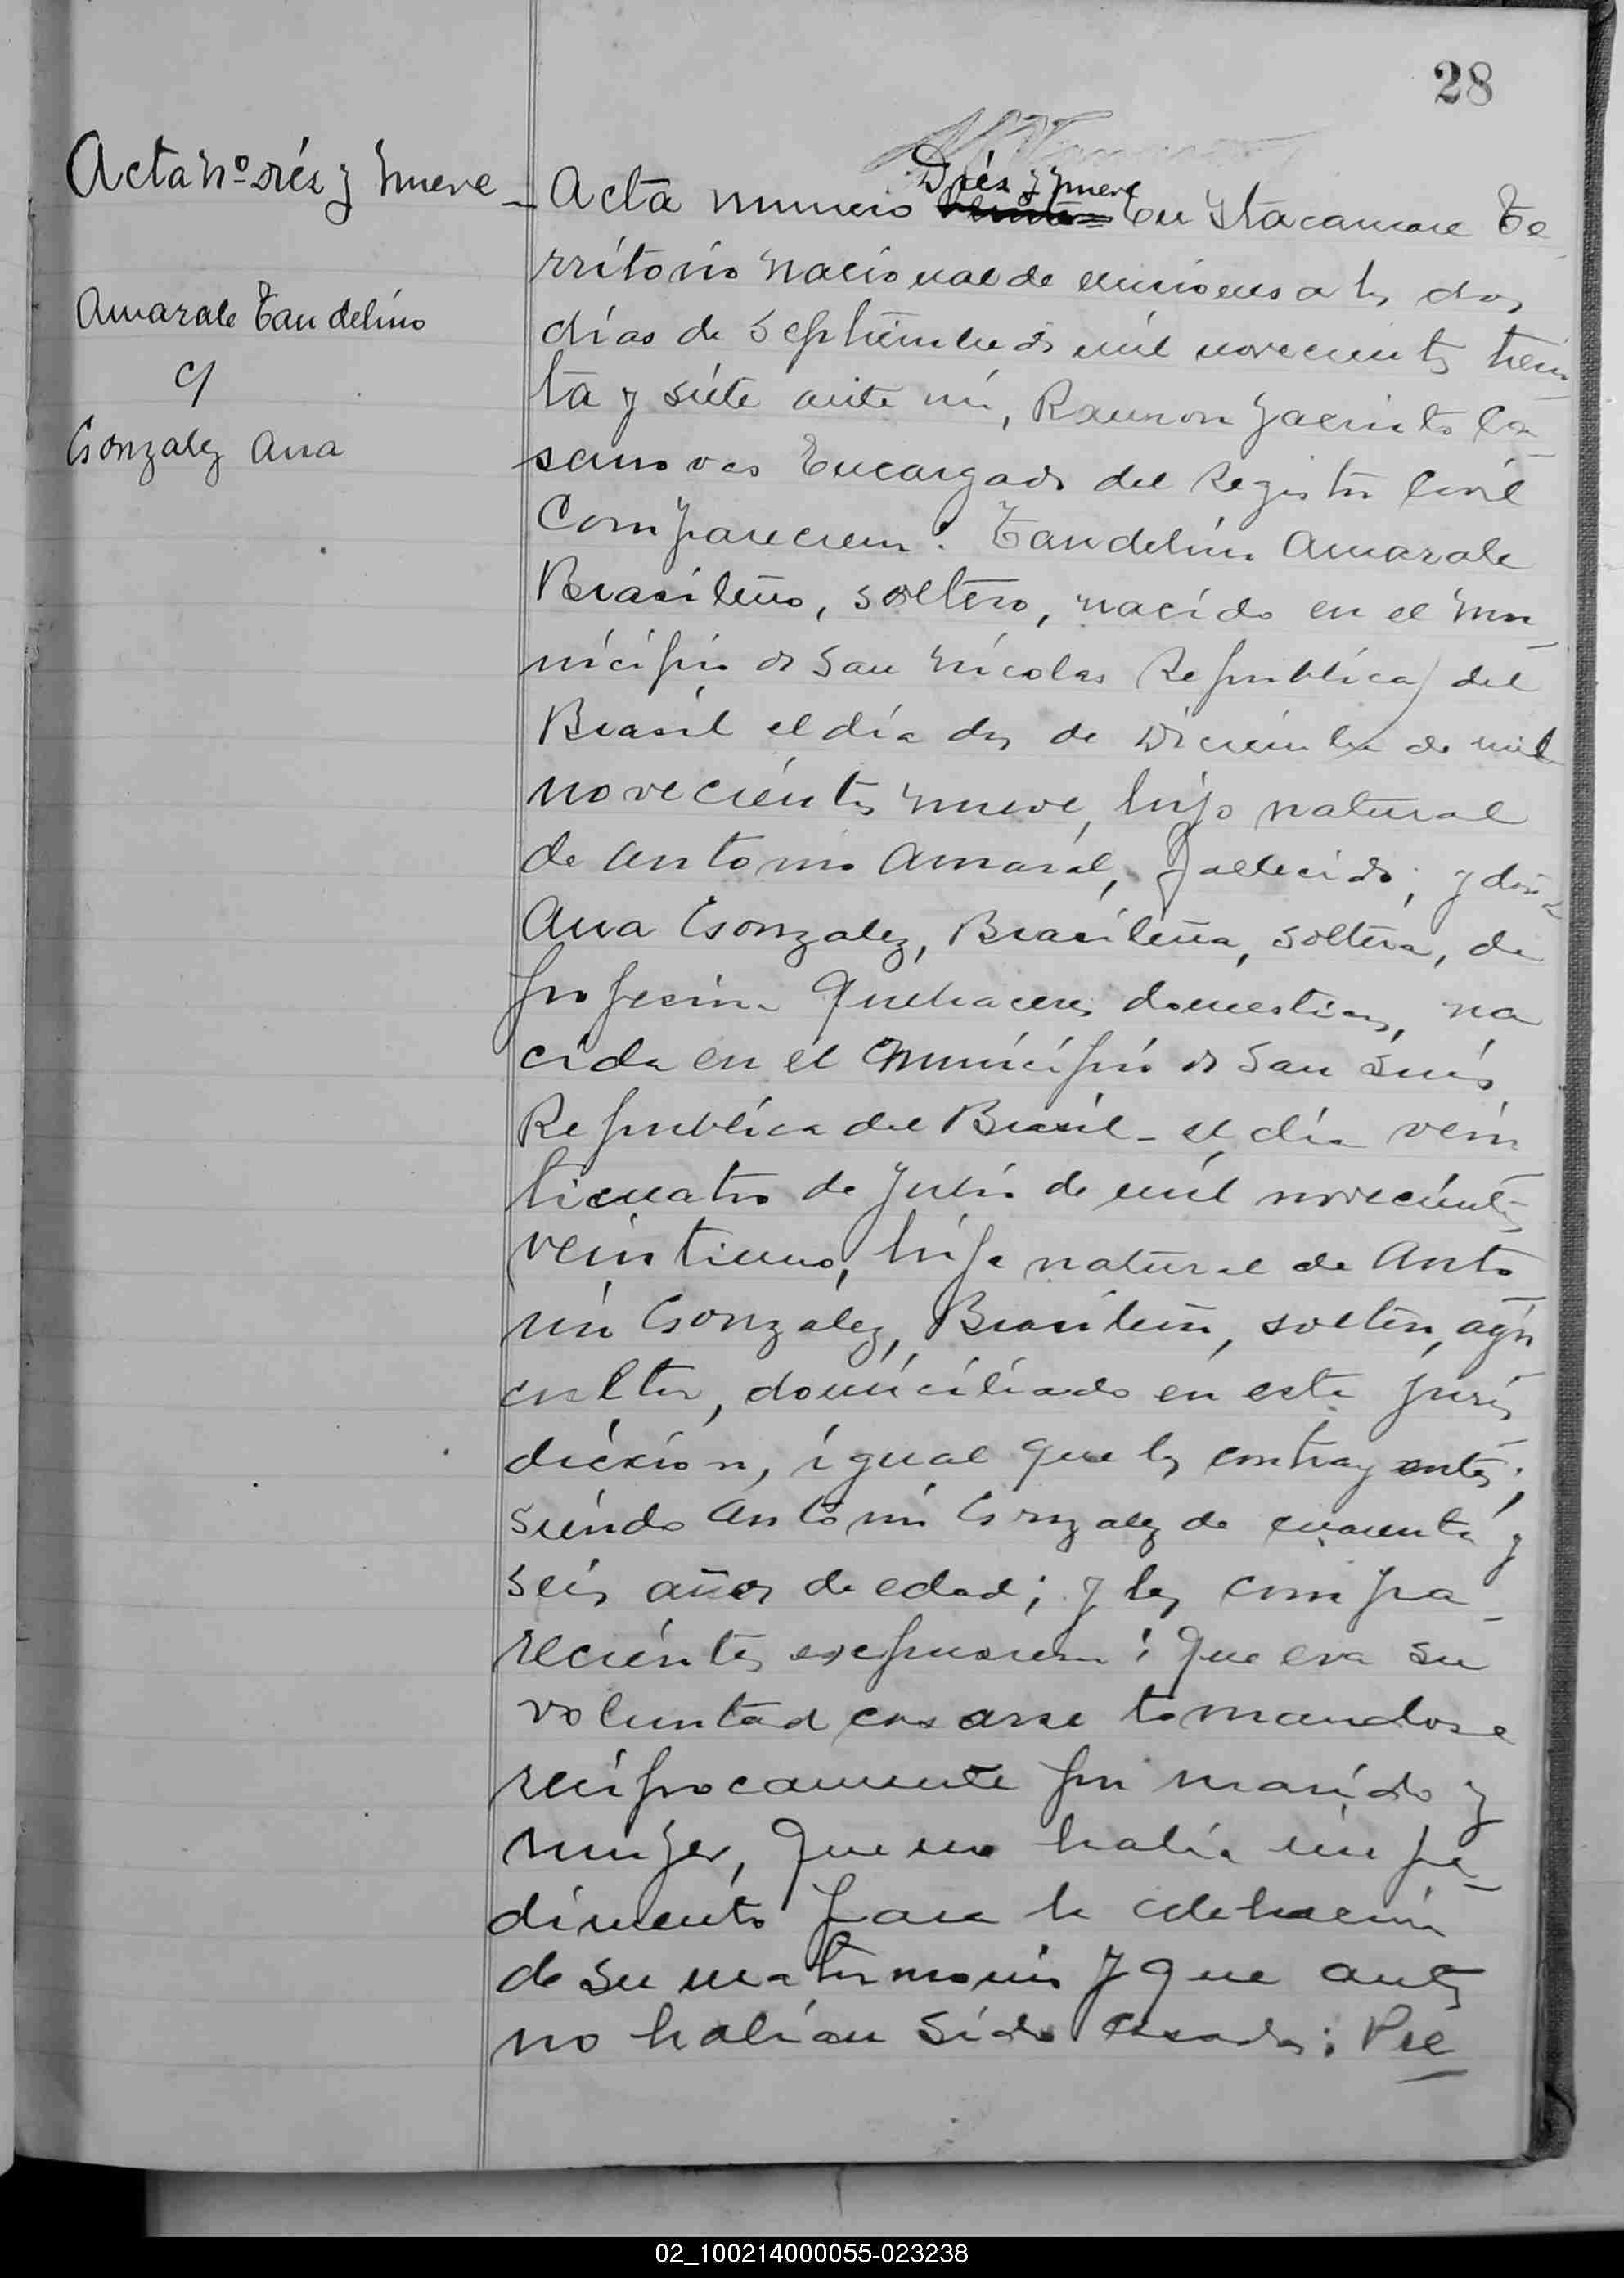 28
Acta Nº diéz y Nueve
Amarale Tandelino
c/
Gonzalez Ana
Diéz y nueve
Acta numero En Itacaruare Te-
rritorio Nacional de misiones a los dos
días de Septiembre de mil novecientos trein-
ta y siete ante mí, Ramon Jacinto Ca-
sanovas Encargado del Registro Civil
Comparecieron: Tandelino Amarale
Brasileño, soltero, nacido en el Mu-
nicipio de San Nicolas Republica del
Brasil el día dos de Diciembre de mil
novecientos nueve, hijo natural
de Antonio Amaral, fallecido; y doña
Ana Gonzalez, Brasileña, soltera, de
profesion Quehaceres domesticos, na
cida en el Municipio de San Luis
Republica del Brasil - el día vein
ticuatro de Julio de mil novecientos
veintiuno, hija natural de Anto-
nio Gonzalez, Brasileño, soltero, agri
cultor, domiciliado en esta juris
dicción, igual que los contrayentes;
siendo Antonio Gonzalez de cuarenta y
seis años de edad; y los compa-
recientes expusieron: Que era su
voluntad casarse tomandose
reciprocamente por marido y
mujer, Que no había impe-
dimento para la celebración
de su matrimonio y que antes
no habían sido casados: Pre
02_100214000055-023238